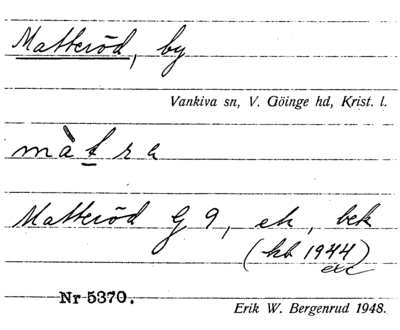 Matteröd, by
Vankiva sn, V. Göinge hd, Krist. l.
màtra
Matteröd G 9, ek, bek
(kb 1944)
exc
Nr 5370.
Erik W. Bergenrud 1948.